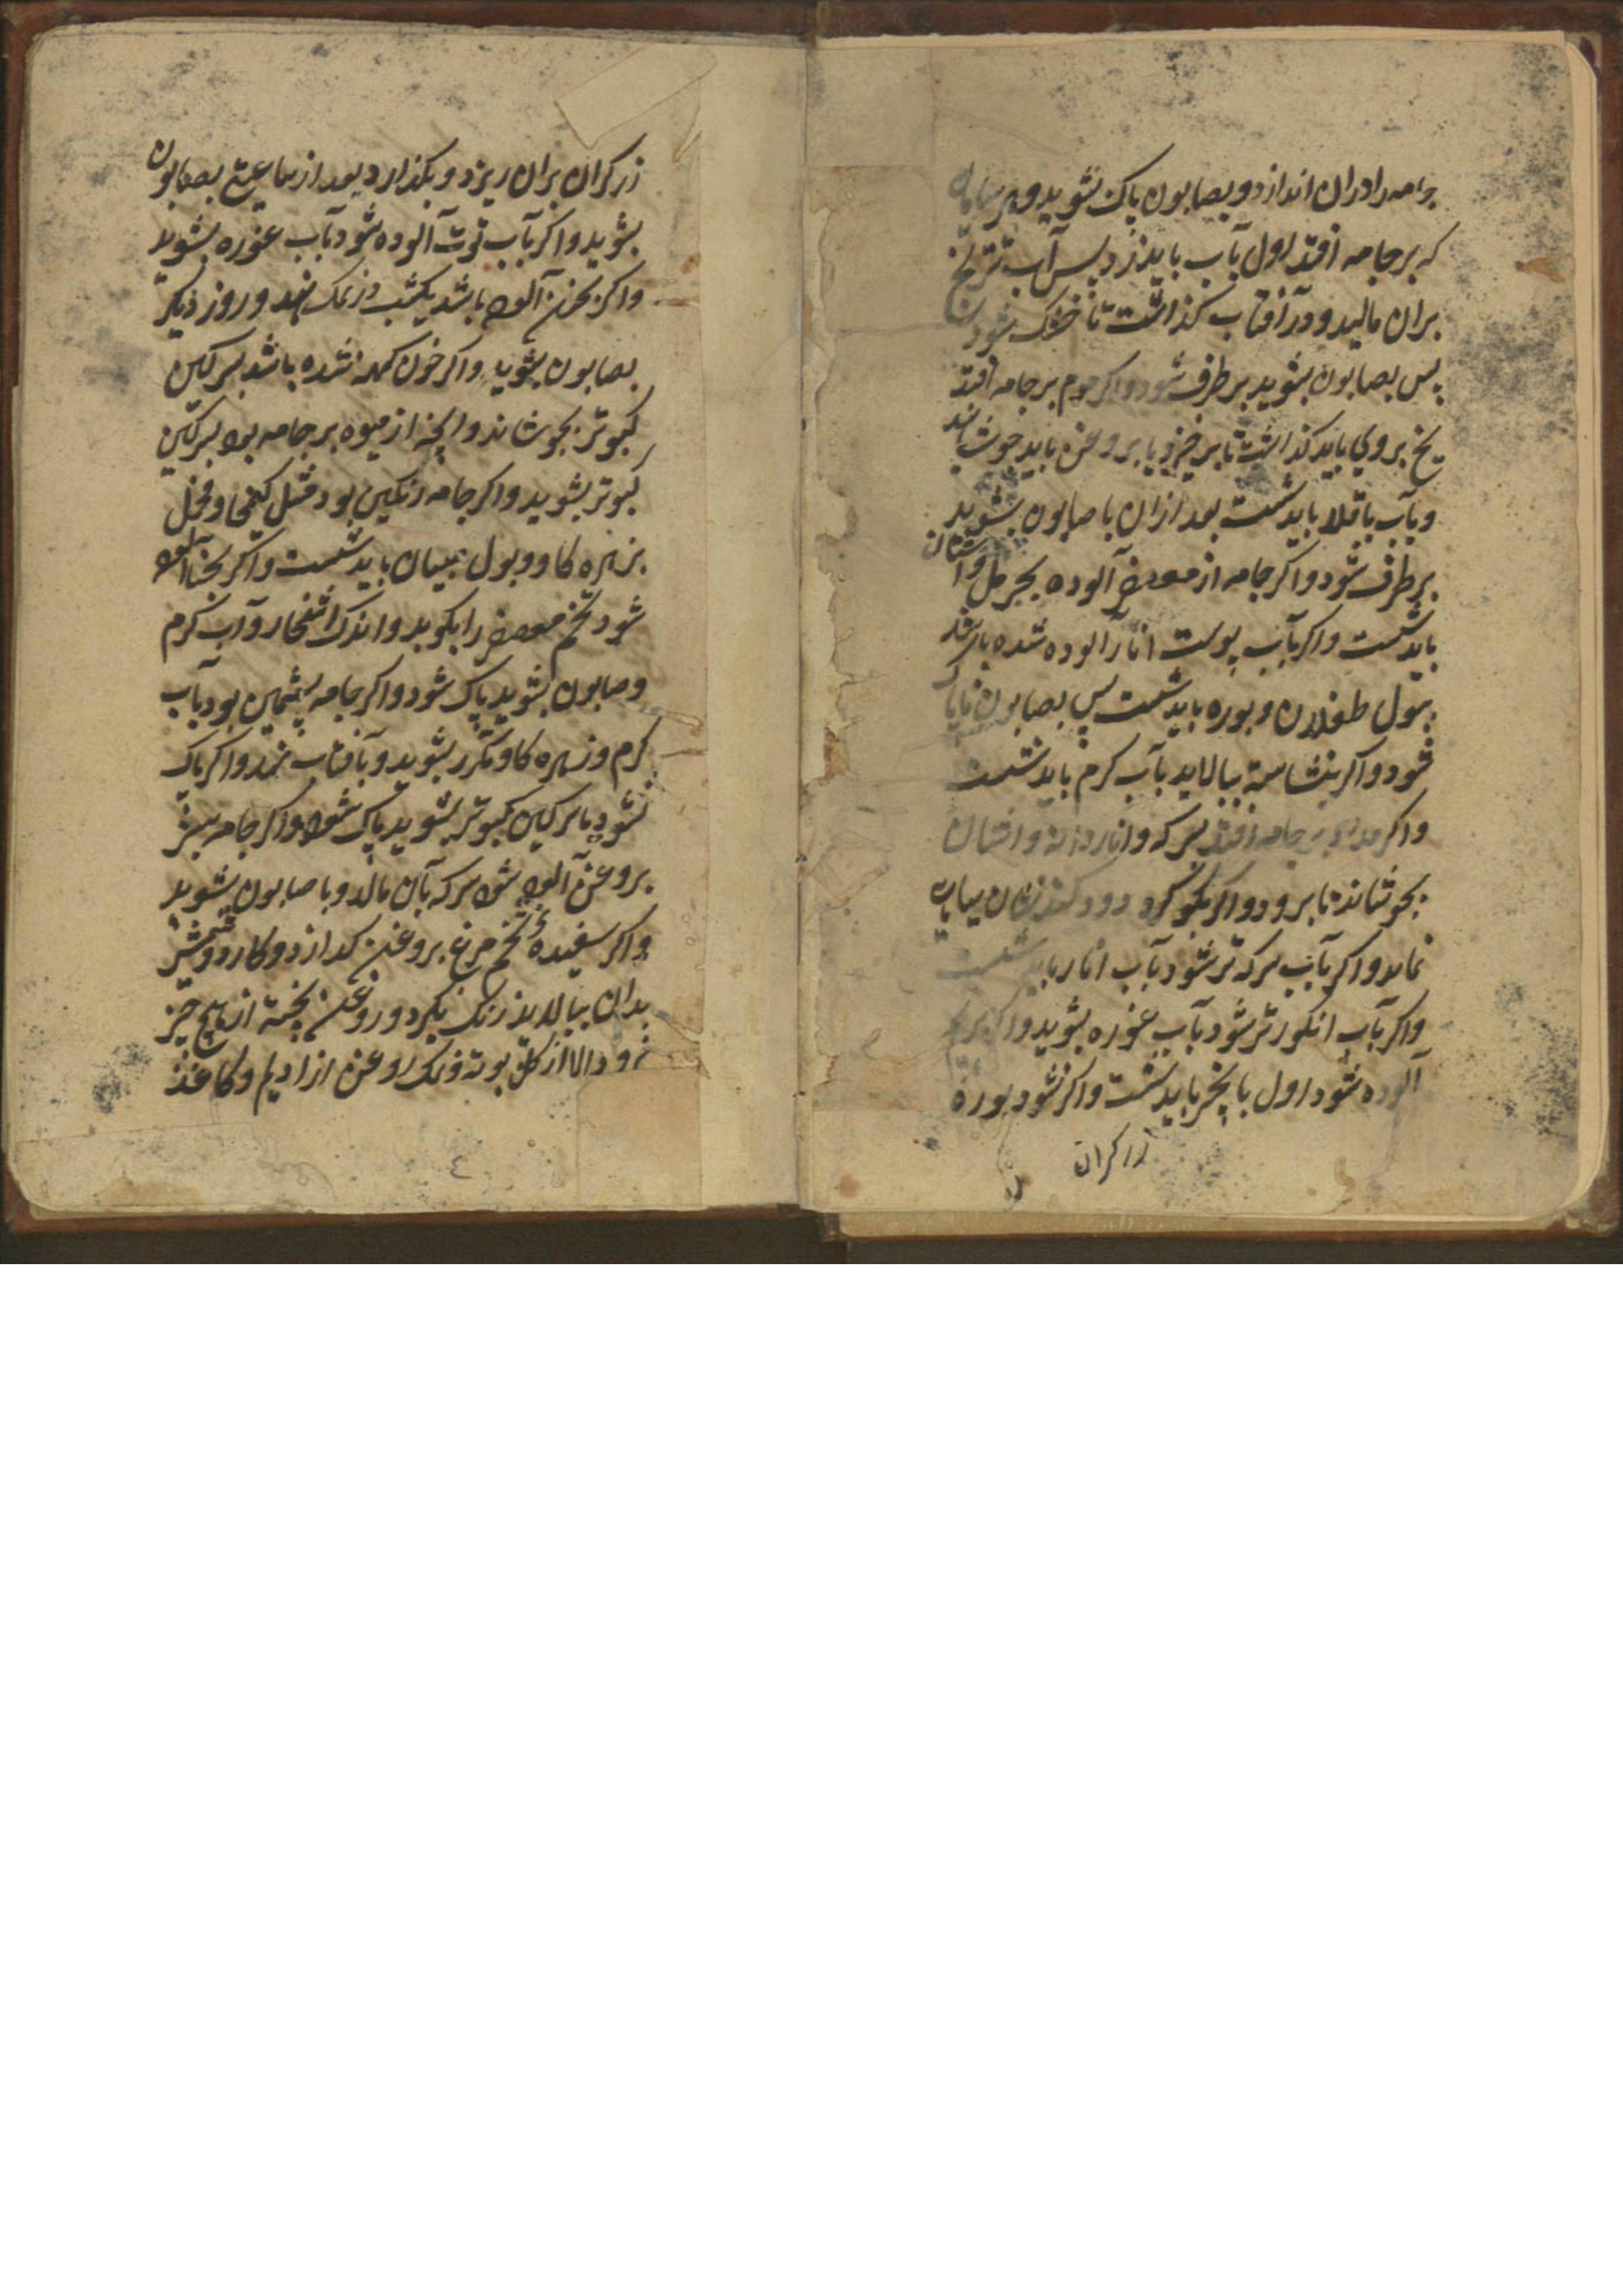 جامه را دران اندازد و بصابون پاک بشوید و هر سیاهی
که بر جامه افتد اول بآب باید زد پس آب ترنج
بران مالید و در آفتاب گذاشت تا خشک شود
پس بصابون بشوید بر طرف شود و اگر موم بر جامه افتد
یخ بروی باید گذاشت تا برخیزد یا بروغن باید جوشانید
و بآب باقلا باید شست بعد ازان با صابون بشوید
بر طرف شود و اگر جامه از معصفر آلوده بحرمل و اشنان
باید شست و اگر بآب پوست انار آلوده شده باشد
ببول طفلان و بوره باید شست پس بصابون تا پاک
شود و اگر بنشاسته بیالاید بآب گرم باید شست
و اگر مداد بر جامه افتد بسرکه و انار دانه و اشنان
بجوشاند تا برود و اگر بگوگرد دود کنند نشان سیاب
نماند و اگر بآب سرکه تر شود بآب انار باید شست
و اگر بآب انگور تر شود بآب غوره بشوید و اگر
آلوده شود اول با پنجر باید شست و اگر نشود بوره
زرکران
زرکران بران ریزد و بگذارد بعد از ساعتی بصابون
بشوید و اگر بآب توت آلوده شود بآب غوره بشوید
و اگر بخون آلوده باشد یکشب در نمک نهد و روز دیگر
بصابون بشوید و اگر خون کهنه شده باشد بسرکین
کبوتر بجوشاند و آنچه از میوه بر جامه بود بسرکین
کبوتر بشوید و اگر جامه رنگین بود مثل کمخا و مخمل
بزهره گاو و بول صبیان باید شست و اگر بحنا آلوده
شود تخم معصفر را بکوبد و اندک اشخار و آب گرم
و صابون بشوید پاک شود و اگر جامه پشمین بود بآب
گرم و زهره گاو مکرر بشوید و بآفتاب نهد و اگر پاک
نشود با سرکین کبوتر بشوید پاک شود و اگر جامه سبز
بروغن آلوده شود سرکه بآن مالد و با صابون بشوید
و اگر سفیده تخم مرغ بروغن گدازد و کارد و شمشیر
بدان بیالاید زنگ نگیرد و روغن پخته از هیچ چیز
نرود الا از گل بوته و زنگ روغن از ادیم و کاغذ
٤